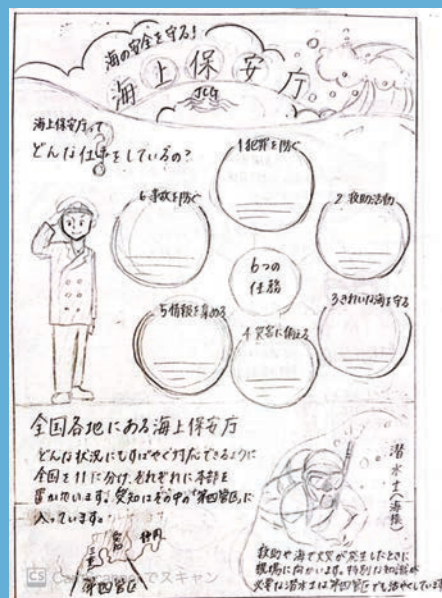 海の安全を守る!
海上保安庁
JCG
海上保安庁って
どんな仕事をしているの?
1 犯罪を防ぐ
2 救助活動
3 きれいな海を守る
4 災害に備える
5 情報を集める
6 事故を防ぐ
6つの
任務
全国各地にある海上保安庁
どんな状況にもすばやく対応できるように
全国を11に分け、それぞれに本部を
置かれています。愛知はその中の「第四管区」に
入っています。
三重
第四管区
潜水士(海猿)
救助や海で火災が発生したときに
現場に向かいます。特別な知識が
必要な潜水士は第四管区でも活やくしています
CS
でスキャン